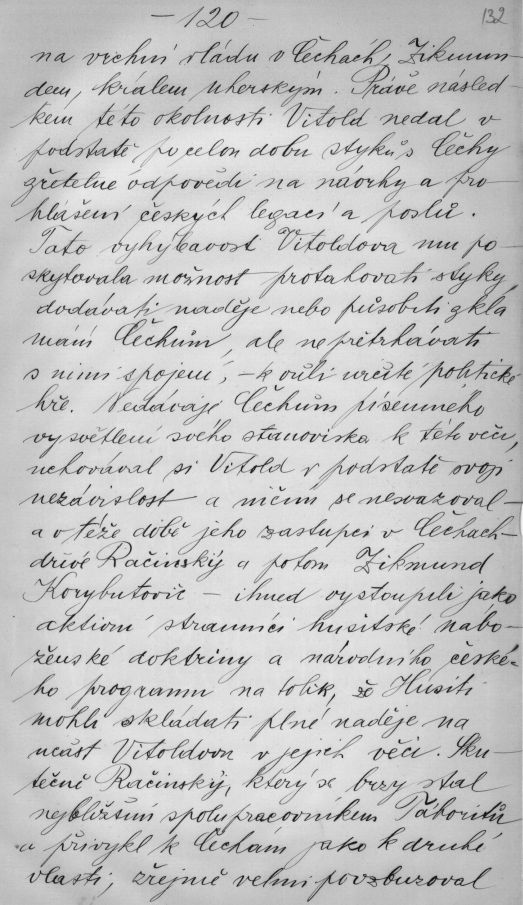 - 120 -
132
na vrchní vládu v Čechách, Zikmun-
dem, králem uherským. Právě násled-
kem této okolnosti Vitold nedal v
podstatě po celou dobu styků s Čechy
zřetelné odpovědi na návrhy a pro-
hlášení českých legací a poslů.
Tato vyhýbavost Vitoldova mu po-
skytovala možnost protahovati styky,
dodávati naděje nebo působiti zkla
mání Čechům, ale nepřetrhávati
s nimi spojení, - k vůli určité politické
hře. Nedávaje Čechům písemného
vysvětlení svého stanoviska k této věci,
uchovával si Vitold v podstatě svoji
nezávislost a ničím se nesvazoval -
a v téže době jeho zastupci v Čechach -
dříve Račinský a potom Zikmund
Korybutovič - ihned vystoupili jako
aktivní stranníci husitské nábo-
ženské doktriny a národního české-
ho programu na tolik, že Husiti
mohli skládati plné naděje na
účast Vitoldovu v jejich věci. Sku-
tečně Račinský, který se brzy stal
nejbližším spolupracovníkem Táboritů
a přivykl k Čechám jako k druhé
vlasti, zřejmě velmi povzbuzoval